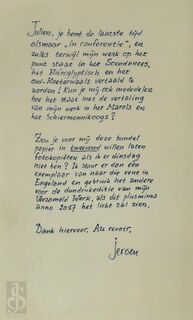 Julien, je bent de laatste tijd
alsmaar „in conferentie”, en
zulks terwijl mijn werk op het
punt staat in het Soendanees,
het Fluïroglyptisch en het
oud-Koeterwaals vertaald te
worden! Kun je mij ook mededelen
hoe het staat met de vertaling
van mijn werk in het Marols en
het Schiermonnikoogs?
Zou je voor mij deze bundel
papier in tweevoud willen laten
fotokopiëren als ik er dinsdag
niet ben? Ik stuur er dan een
exemplaar van naar die vent in
Engeland en gebruik het andere
voor de dundrukeditie van mijn
Verzameld Werk, dat plusminus
anno 2017 het licht zal zien.
Dank hiervoor. Au revoir,
Jeroen